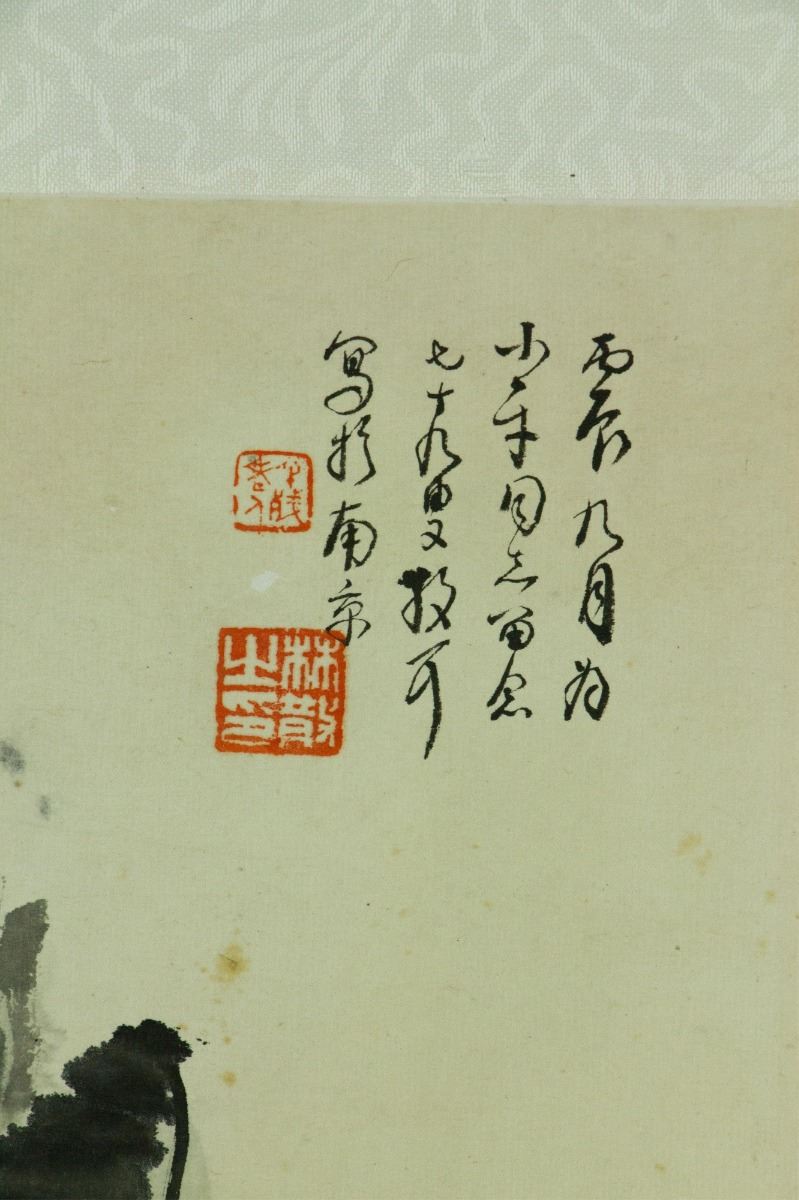 丙辰九月为
小平同志留念
七十九叟散耳
写于南京
林散之印